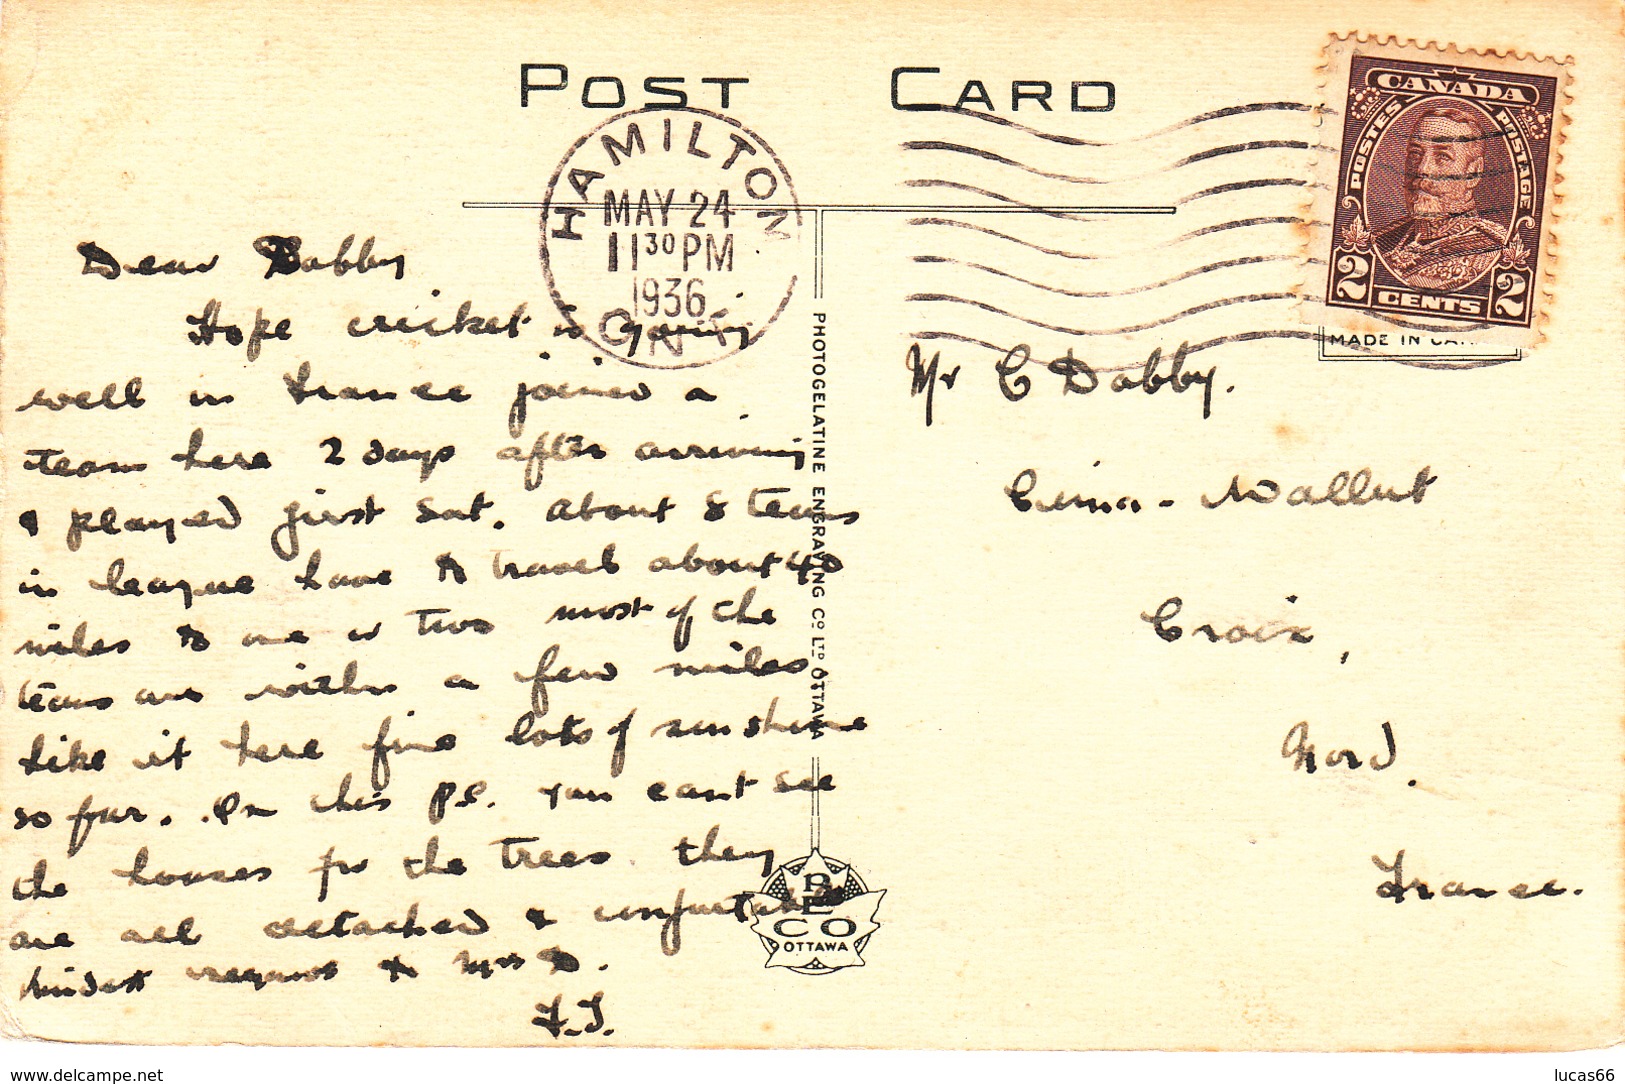 POST CARD
HAMILTON
MAY 24
11 30 PM
1936
ONT
CANADA
POSTES POSTAGE
2 CENTS 2
MADE IN CA
Dear Dabby
Hope cricket is going
well in France joined a
team here 2 days after arriving
& played first Sat. About 8 teams
in league have to travel about 40
miles to one or two most of the
teams are within a few miles
like it here fine lots of sunshine
so far. On this p.c. you cant see
the houses for the trees. they
are all detached & comfortable
kindest regards to Mrs D.
PHOTOGELATINE ENGRAVING CO LTD OTTAWA
PECO
OTTAWA
Mr C Dabby.
Croix,
Nord.
France.
www.delcampe.net
lucas66